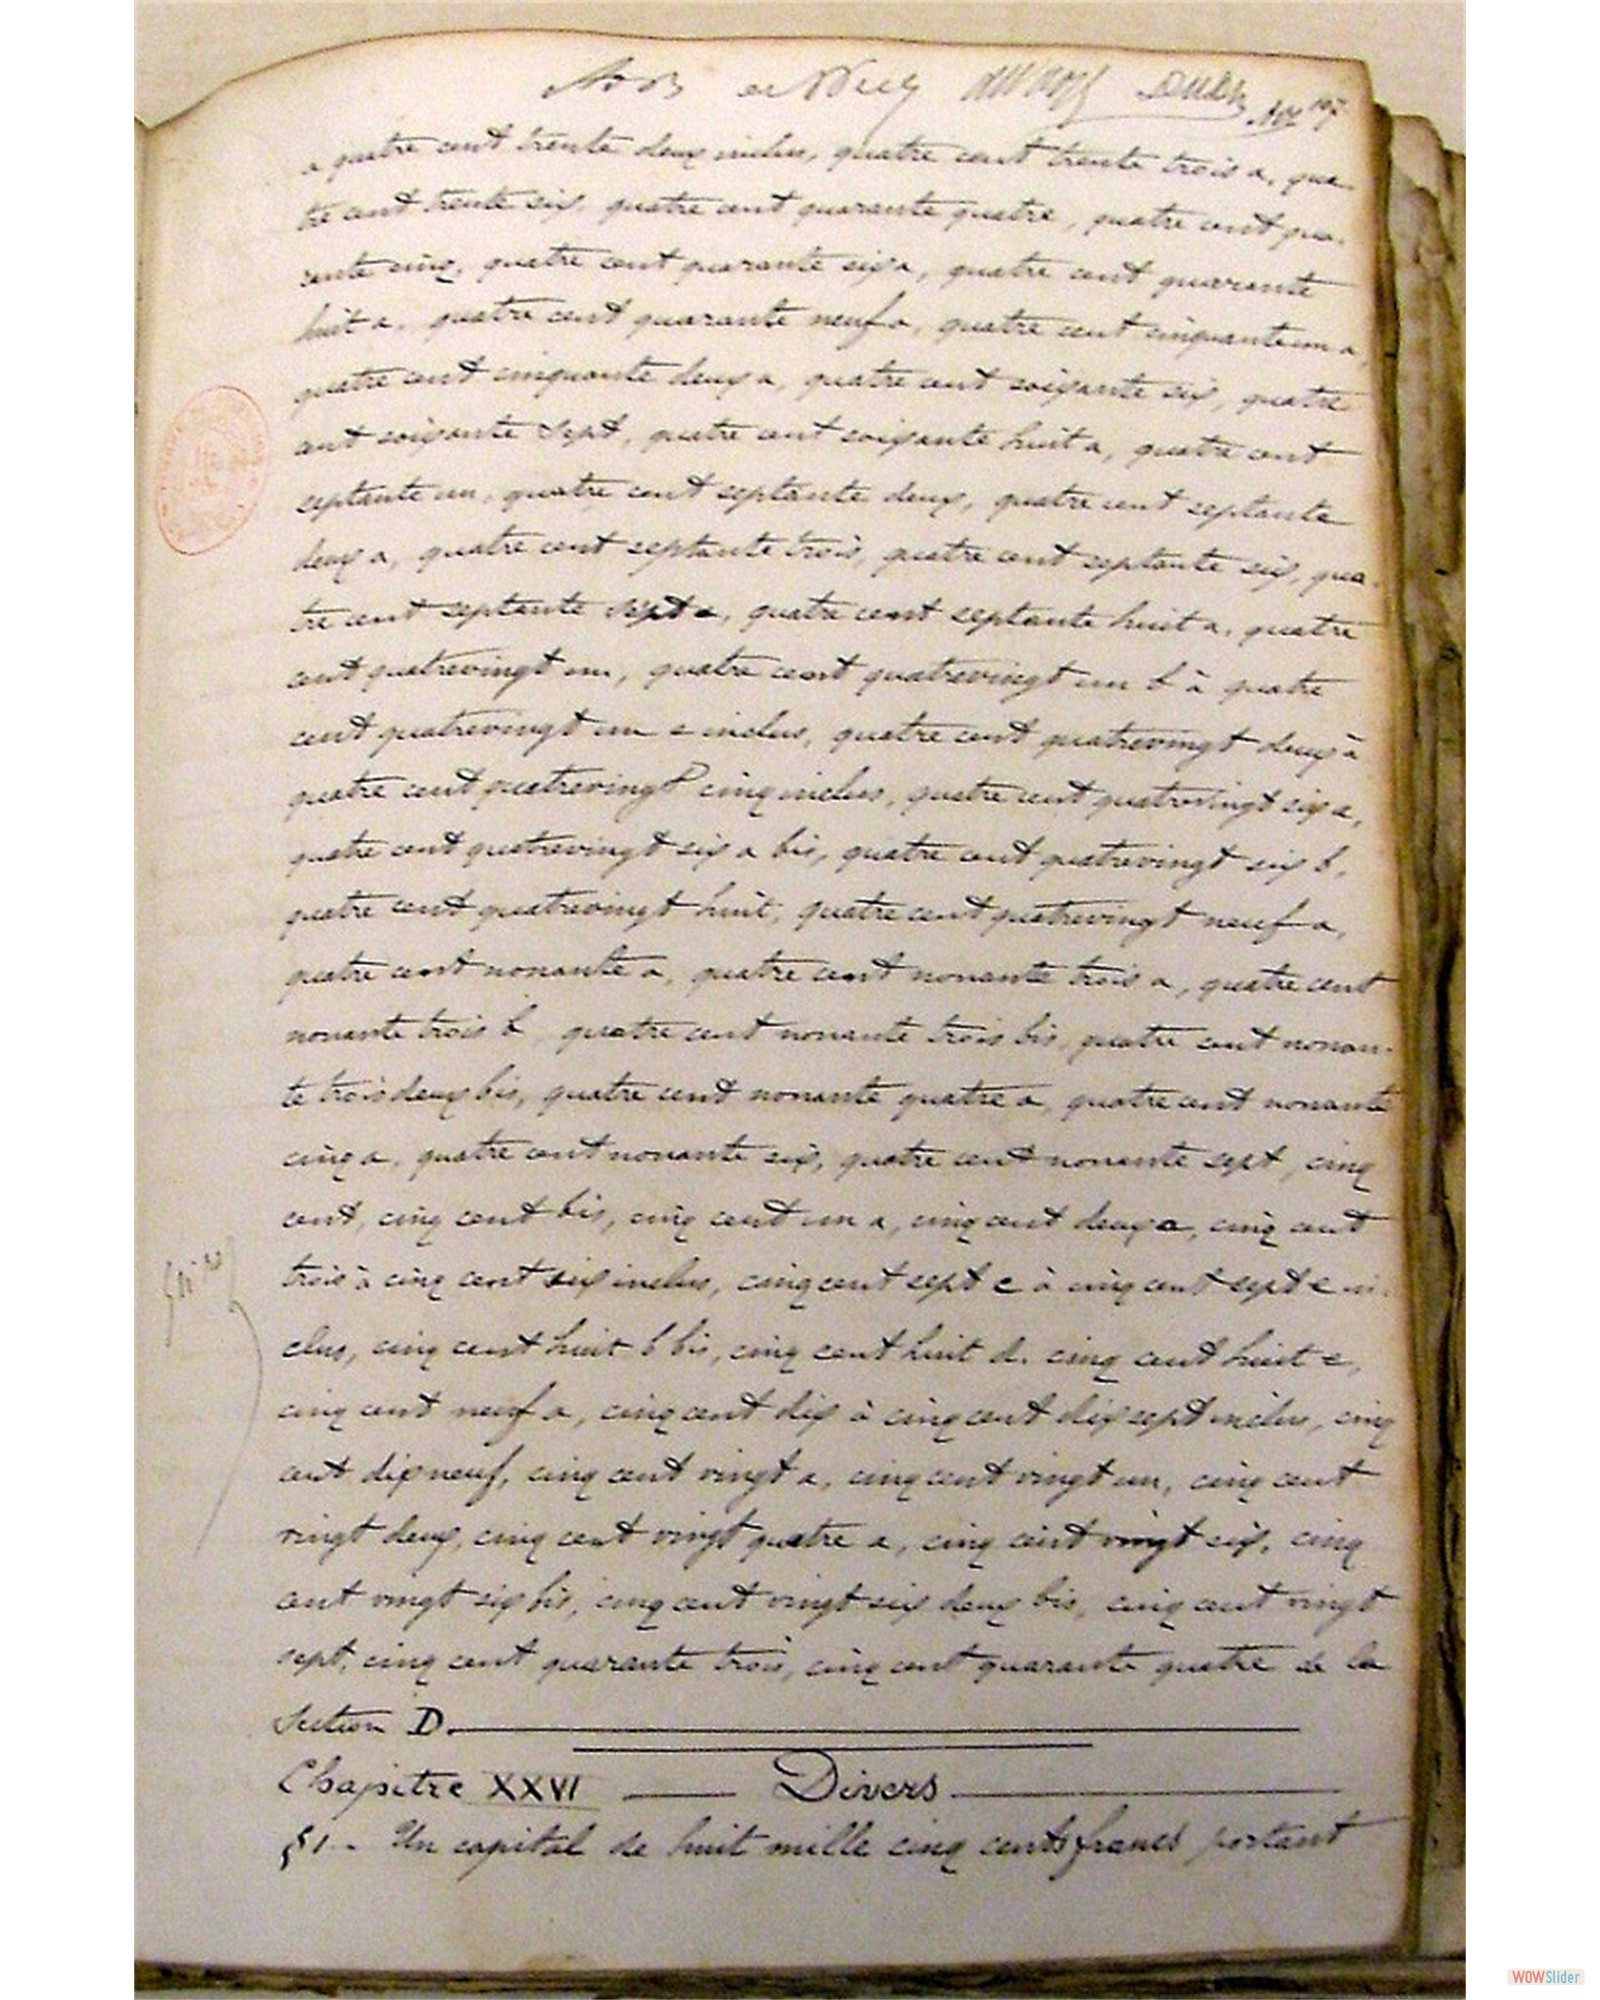 a quatre cent trente deux inclus, quatre cent trente trois a, qua
tre cent trente six, quatre cent quarante quatre, quatre cent qua-
rante cinq, quatre cent quarante six a, quatre cent quarante
huit a, quatre cent quarante neuf a, quatre cent cinquante un a,
quatre cent cinquante deux a, quatre cent soixante six, quatre
cent soixante sept, quatre cent soixante huit a, quatre cent
septante un, quatre cent septante deux, quatre cent septante
deux a, quatre cent septante trois, quatre cent septante six, qua-
tre cent septante sept a, quatre cent septante huit a, quatre
cent quatrevingt un, quatre cent quatrevingt un b à quatre
cent quatrevingt un e inclus, quatre cent quatrevingt deux à
quatre cent quatrevingt cinq inclus, quatre cent quatrevingt six a,
quatre cent quatrevingt six a bis, quatre cent quatrevingt six b,
quatre cent quatrevingt huit, quatre cent quatrevingt neuf a,
quatre cent nonante a, quatre cent nonante trois a, quatre cent
nonante trois b, quatre cent nonante trois bis, quatre cent nonan-
te trois deux bis, quatre cent nonante quatre a, quatre cent nonante
cinq a, quatre cent nonante six, quatre cent nonante sept, cinq
cent, cinq cent bis, cinq cent un a, cinq cent deux a, cinq cent
trois à cinq cent six inclus, cinq cent sept c à cinq cent sept e in-
clus, cinq cent huit b bis, cinq cent huit d, cinq cent huit e,
cinq cent neuf a, cinq cent dix à cinq cent dix sept inclus, cinq
cent dix neuf, cinq cent vingt a, cinq cent vingt un, cinq cent
vingt deux, cinq cent vingt quatre a, cinq cent vingt six, cinq
cent vingt six bis, cinq cent vingt six deux bis, cinq cent vingt
sept, cinq cent quarante trois, cinq cent quarante quatre de la
Section D.
Chapitre XXVI Divers.
§1.- Un capital de huit mille cinq cents francs portant
WOWSlider